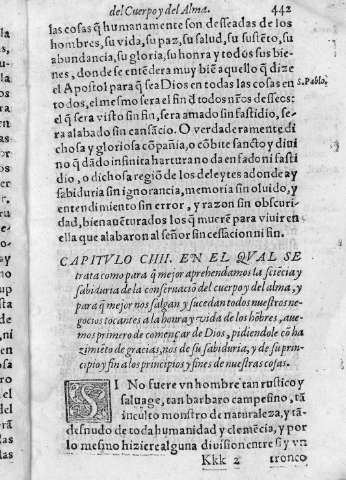 del Cuerpo y del Alma. 442
las cosas q̃ humanamente son desseadas de los
hombres, su vida, su paz, su salud, su sustẽto, su
abundancia, su gloria, su honra y todos sus bie-
nes, donde se entẽdera muy biẽ aquello q̃ dize
el Apostol para q̃ sea Dios en todas las cosas en
S. Pablo.
todos, el mesmo sera el fin d̃ todos nr̃os desseos:
el q̃ sera visto sin fin, sera amado sin fastidio, se-
ra alabado sin cansãcio. O verdaderamente di
chosa y gloriosa cõpañia, o cõbite sancto y divi
no q̃ dãdo infinita hartura no da enfado ni fasti
dio, o dichosa regiõ de los deleytes adonde ay
sabiduria sin ignorancia, memoria sin oluido, y
entendimiento sin error, y razon sin obscuri-
dad, bienauẽturados los q̃ mueren para viuir en
ella que alabaron al señor sin cessacion ni sin.
CAPITVLO CIIII. EN EL QVAL SE
trata como para q̃ mejor aprehendamos la sciẽcia y
sabiduria de la conseruaciõ del cuerpo y del alma, y
para q̃ mejor nos salgan y sucedan todos nuestros ne-
gocios tocantes a la honra y vida de los hõbres, aue-
mos primero de començar de Dios, pidiendole cõ ha
zimiẽto de gracias, nos de su sabiduria, y de su prin-
cipio y fin a los principios y fines de nuestras cosas.
SI No fuere vn hombre tan rustico y
saluage, tan barbaro campesino, tã
inculto monstro de naturaleza, y tã
desnudo de toda humanidad y clemẽcia, y por
lo mesmo hiziere alguna diuision entre si y vn
Kkk 2 tronco